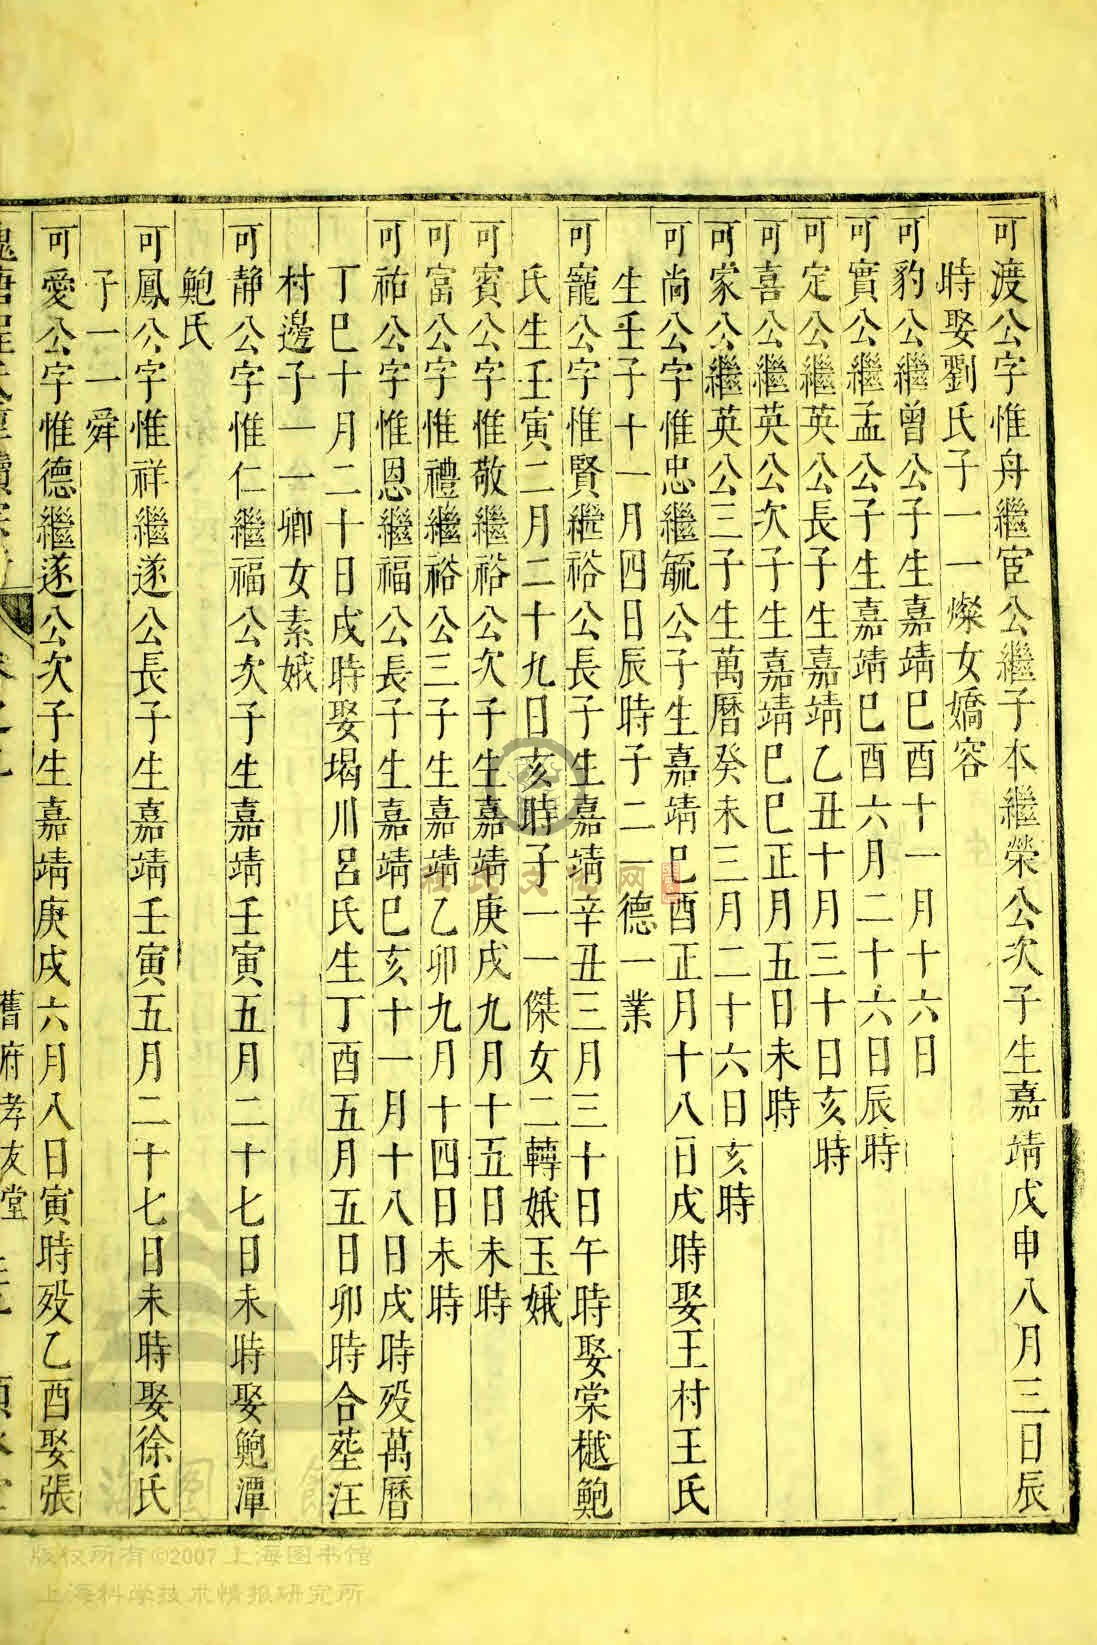 可渡公字惟舟繼宦公繼子本繼榮公次子生嘉靖戊申八月三日辰
時娶劉氏子一一燦女嬌容
可豹公繼曾公子生嘉靖巳酉十一月十六日
可實公繼孟公子生嘉靖巳酉六月二十六日辰時
可定公繼英公長子生嘉靖乙丑十月三十日亥時
可喜公繼英公次子生嘉靖巳巳正月五日未時
可家公繼英公三子生萬曆癸未三月二十六日亥時
可尚公字惟忠繼毓公子生嘉靖巳酉正月十八日戌時娶王村王氏
生壬子十一月四日辰時子二一德一業
可寵公字惟賢繼裕公長子生嘉靖辛丑三月三十日午時娶棠樾鮑
氏生壬寅二月二十九日亥時子一一傑女二轉娥玉娥
可賓公字惟敬繼裕公次子生嘉靖庚戌九月十五日未時
可富公字惟禮繼裕公三子生嘉靖乙卯九月十四日未時
可祐公字惟恩繼福公長子生嘉靖巳亥十一月十八日戌時歿萬曆
丁巳十月二十日戌時娶堨川呂氏生丁酉五月五日卯時合塟汪
村邊子一一卿女素娥
可靜公字惟仁繼福公次子生嘉靖壬寅五月二十七日未時娶鮑潭
鮑氏
可鳳公字惟祥繼遂公長子生嘉靖壬寅五月二十七日未時娶徐氏
子一一舜
可愛公字惟德繼遂公次子生嘉靖庚戌六月八日寅時歿乙酉娶張
舊府孝友堂
版权所有©2007上海图书馆
上海科学技术情报研究所